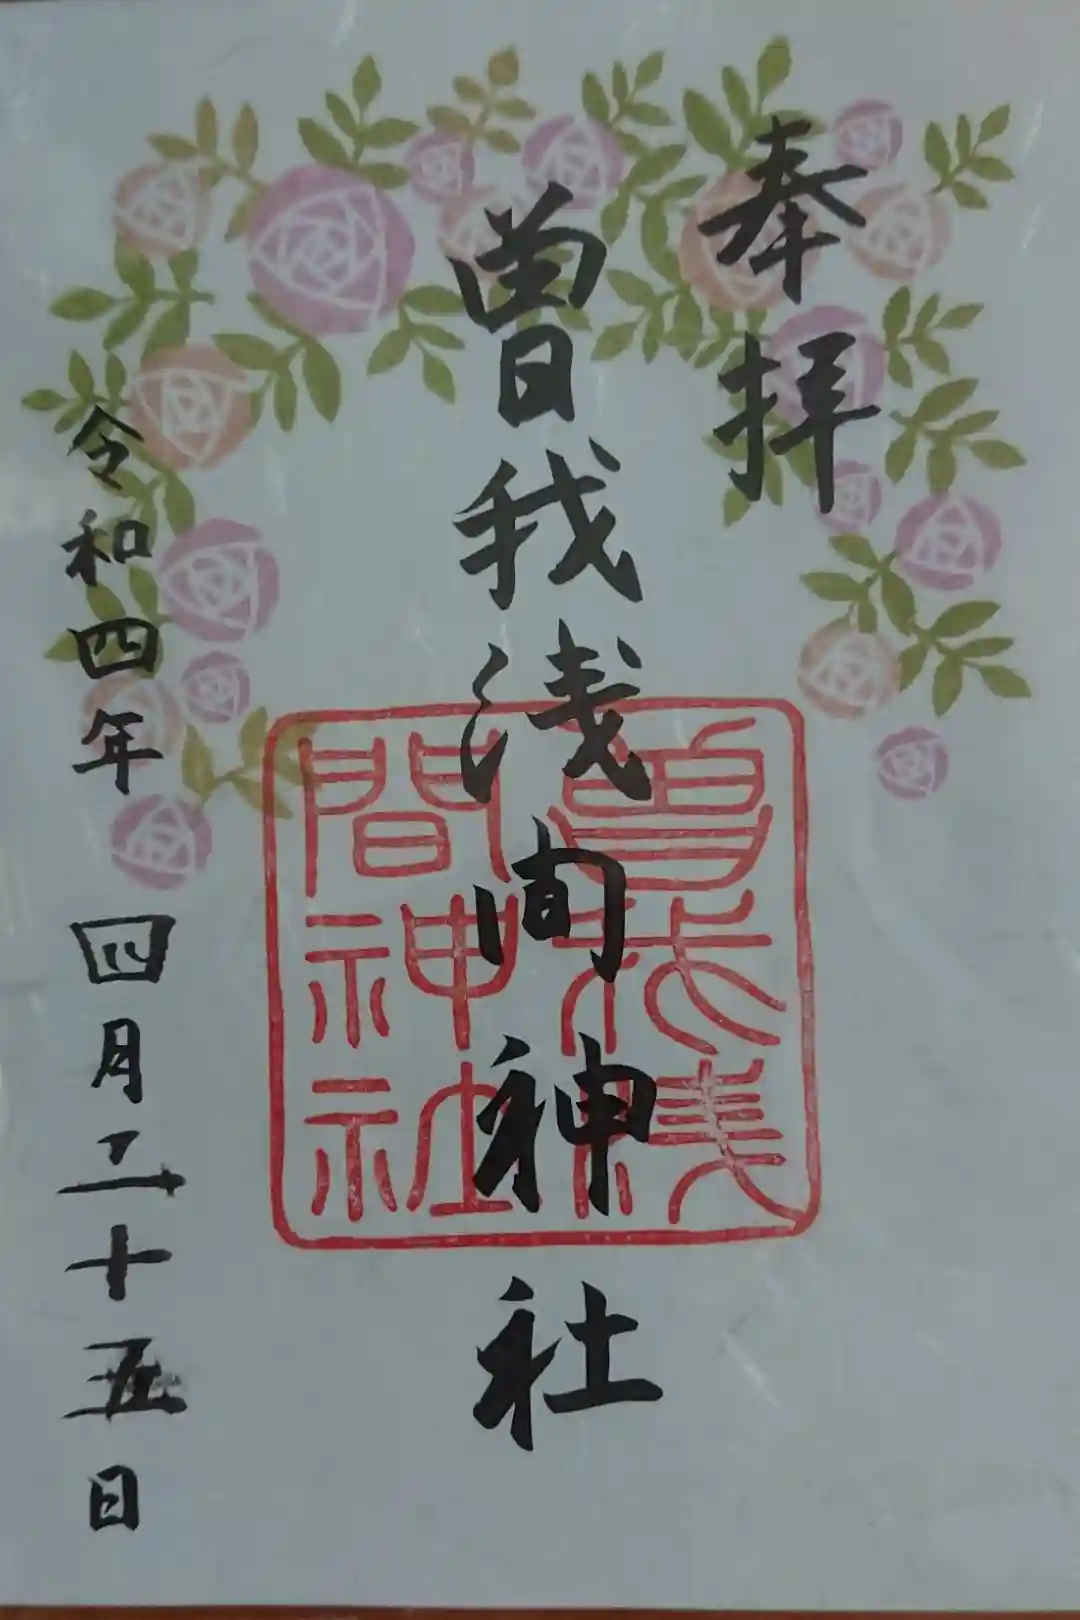 奉拝
曽我浅間神社
曽我浅
間神社
令和四年 四月二十五日